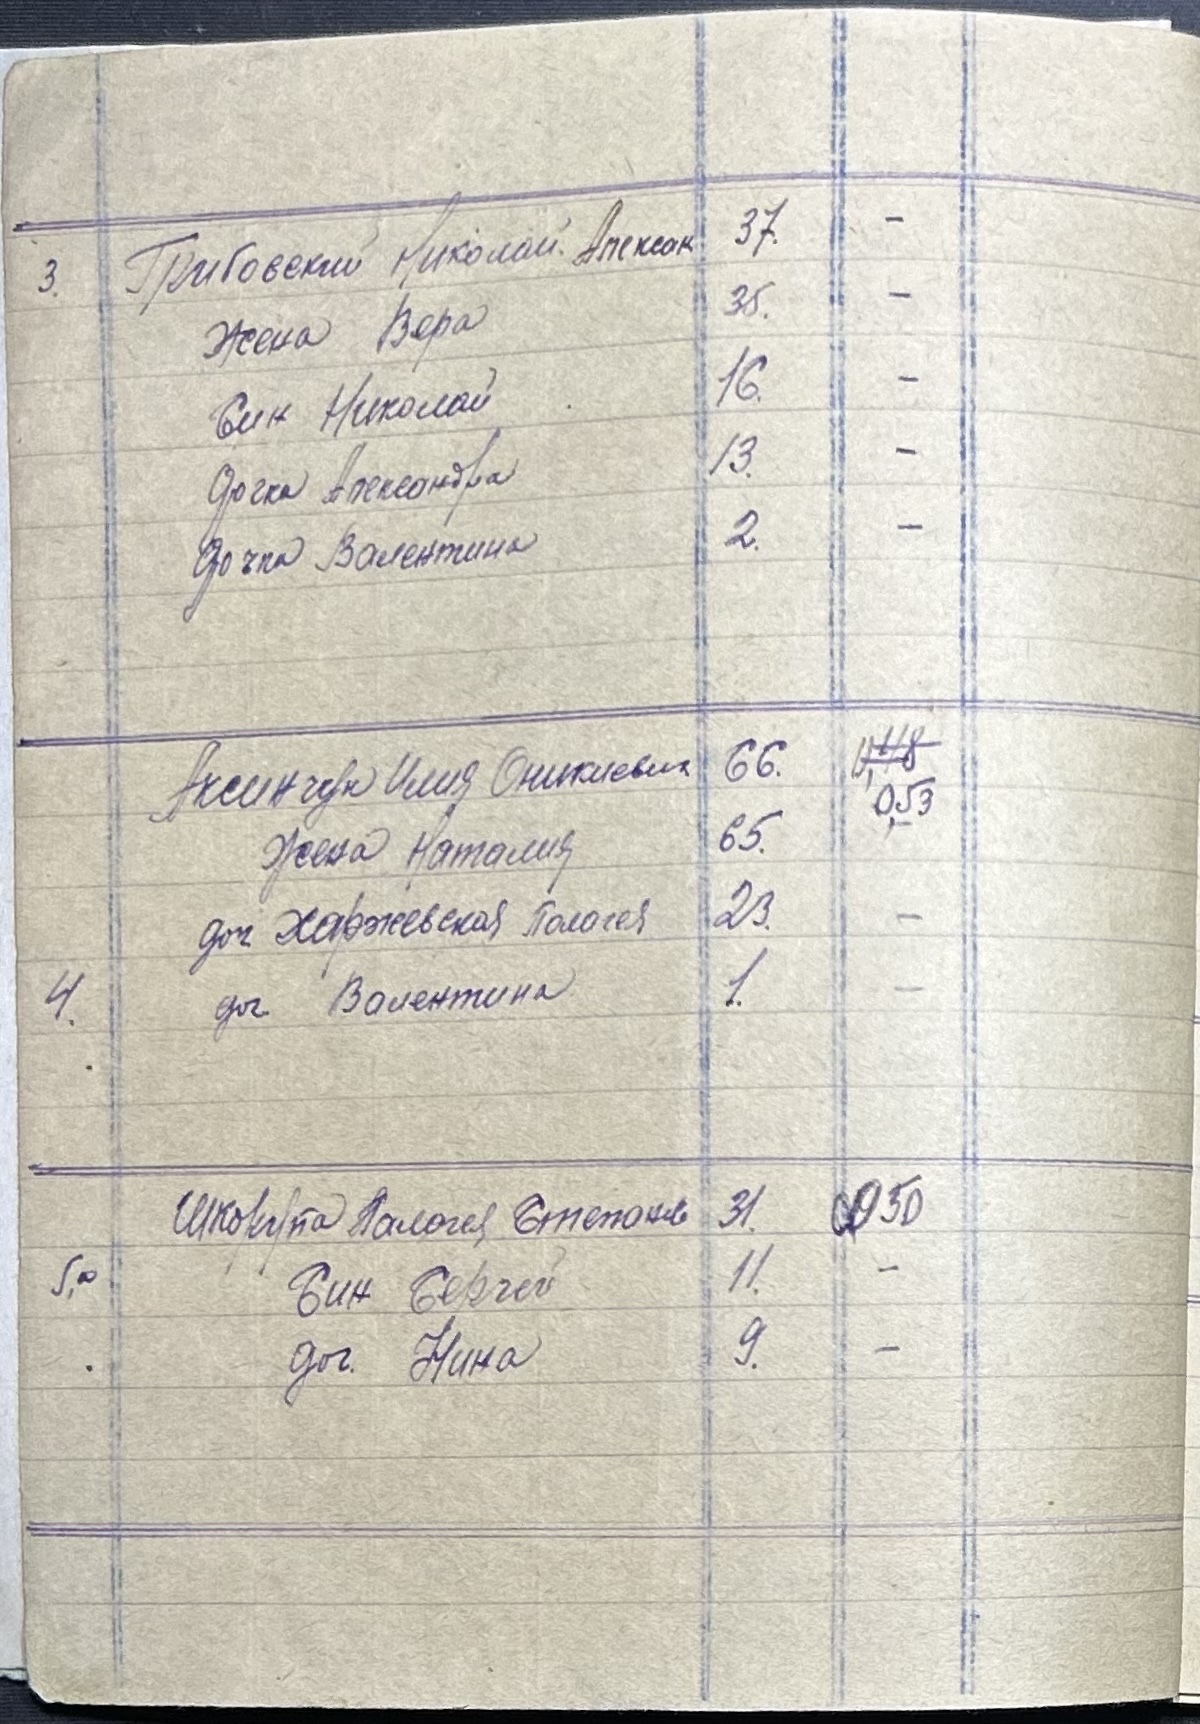 3. Грибовский Николай Алексан 37. -
Жена Вера 35. -
Син Николай 16. -
дочка Александра 13. -
дочка Валентина 2. -
Аксинчук Илия Оникиевич 66.
0,53
Жена Наталия 65. -
доч Харжевская Палогея 23. -
4. доч. Валентина 1. -
Шкорупа Палогея Степанов 31. 0,50
5, Син Сергей 11. -
доч. Нина 9. -